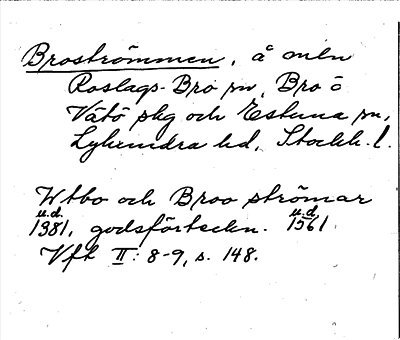 Broströmmen, å mln
Roslags-Bro sn, Bro o
Vätö skg och Estuna sn,
Lyhundra hd, Stockh. l.
Wtbo och Broo strömar
u.d. u.d
1381, godsförteckn. 1561
Vft II: 8-9, s. 148.